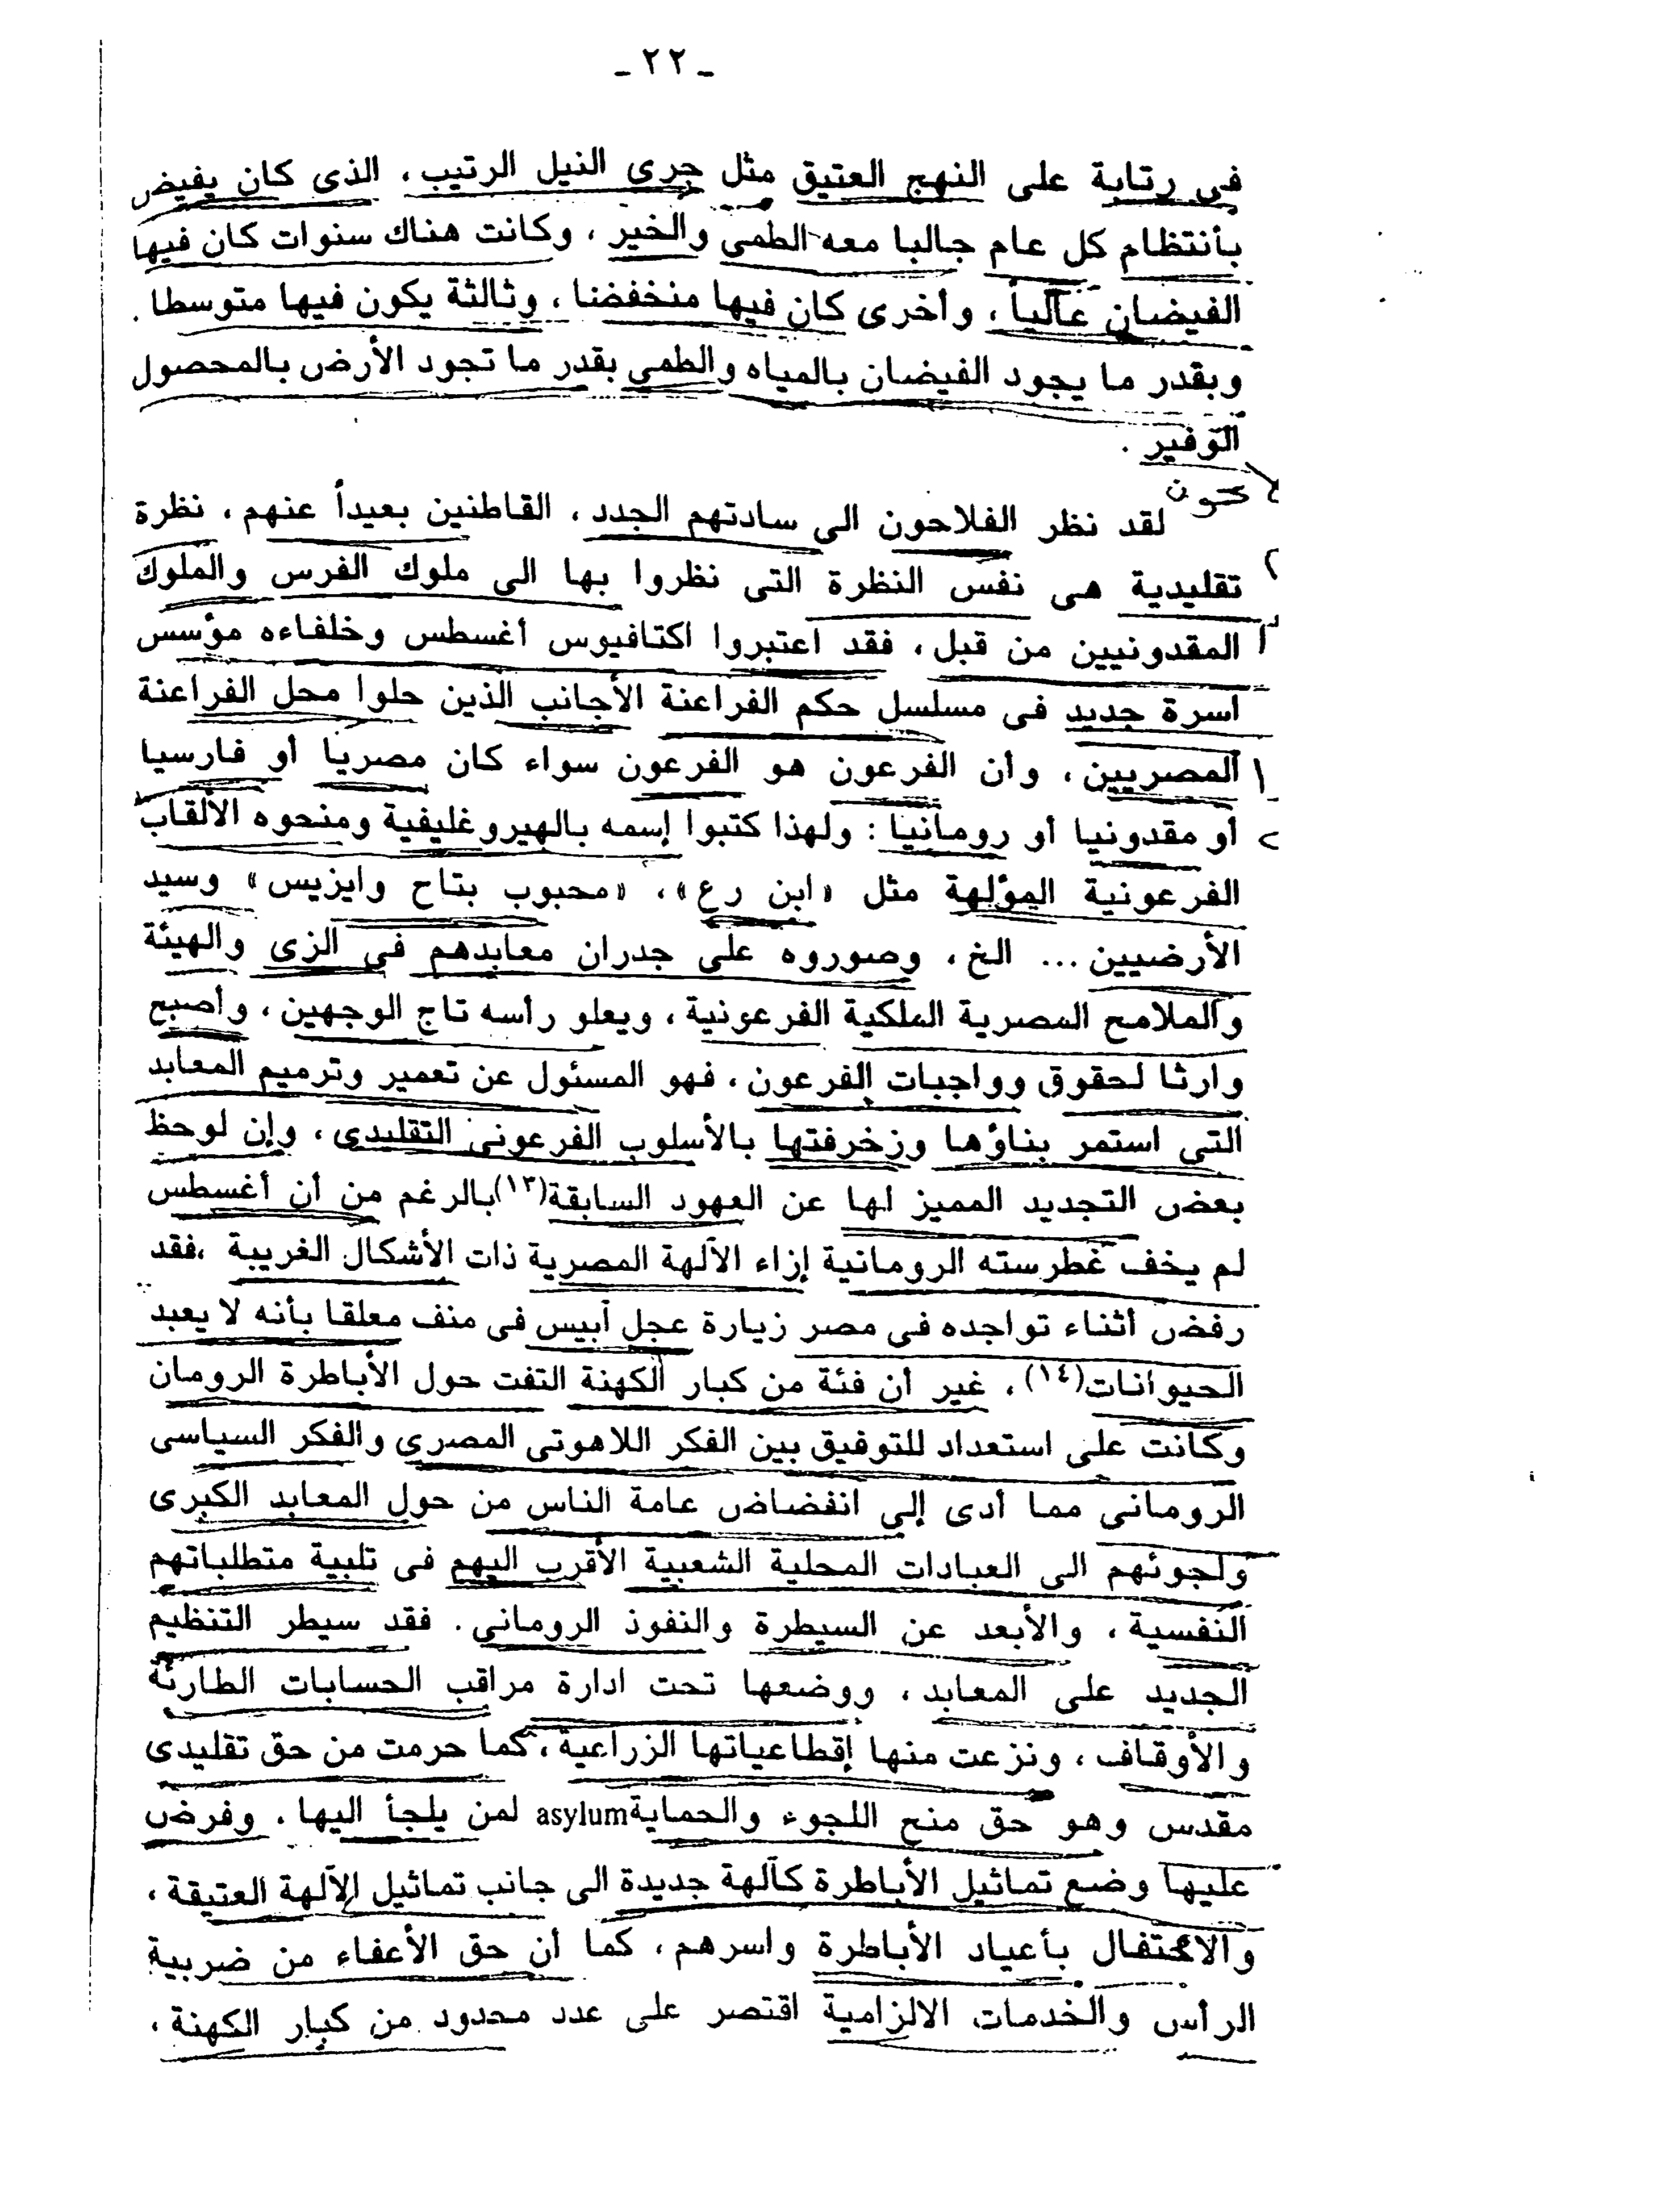 ـ ٢٢ ـ
فى رتابة على النهج العتيق مثل جرى النيل الرتيب ، الذى كان يفيض
بأنتظام كل عام جالبا معه الطمى والخير ، وكانت هناك سنوات كان فيها
الفيضان عالياً ، وأخرى كان فيها منخفضا ، وثالثة يكون فيها متوسطا .
وبقدر ما يجود الفيضان بالمياه والطمى بقدر ما تجود الأرض بالمحصول
الوفير .
لقد نظر الفلاحون الى سادتهم الجدد ، القاطنين بعيداً عنهم ، نظرة
تقليدية هى نفس النظرة التى نظروا بها الى ملوك الفرس والملوك
المقدونيين من قبل ، فقد اعتبروا اكتافيوس أغسطس وخلفاءه مؤسس
اسرة جديد فى مسلسل حكم الفراعنة الأجانب الذين حلوا محل الفراعنة
المصريين ، وأن الفرعون هو الفرعون سواء كان مصريا أو فارسيا
أو مقدونيا أو رومانيا : ولهذا كتبوا إسمه بالهيروغليفية ومنحوه الألقاب
الفرعونية المؤلهة مثل «ابن رع» ، «محبوب بتاح وايزيس» وسيد
الأرضيين ... الخ ، وصوروه على جدران معابدهم فى الزى والهيئة
والملامح المصرية الملكية الفرعونية ، ويعلو رأسه تاج الوجهين ، وأصبح
وارثا لحقوق وواجبات الفرعون ، فهو المسئول عن تعمير وترميم المعابد
التى استمر بناؤها وزخرفتها بالأسلوب الفرعونى التقليدى ، وإن لوحظ
بعض التجديد المميز لها عن العهود السابقة(١٣) بالرغم من أن أغسطس
لم يخف غطرسته الرومانية إزاء الآلهة المصرية ذات الأشكال الغريبة ،فقد
رفض أثناء تواجده فى مصر زيارة عجل أبيس فى منف معلقا بأنه لا يعبد
الحيوانات(١٤) ، غير أن فئة من كبار الكهنة التفت حول الأباطرة الرومان
وكانت على استعداد للتوفيق بين الفكر اللاهوتى المصرى والفكر السياسى
الرومانى مما أدى إلى انفضاض عامة الناس من حول المعابد الكبرى
ولجوئهم الى العبادات المحلية الشعبية الأقرب اليهم فى تلبية متطلباتهم
النفسية ، والأبعد عن السيطرة والنفوذ الرومانى . فقد سيطر التنظيم
الجديد على المعابد ، ووضعها تحت ادارة مراقب الحسابات الطارئة
والأوقاف ، ونزعت منها إقطاعياتها الزراعية ، كما حرمت من حق تقليدى
مقدس وهو حق منح اللجوء والحماية asylum لمن يلجأ اليها ، وفرض
عليها وضع تماثيل الأباطرة كآلهة جديدة الى جانب تماثيل الآلهة العتيقة ،
والاحتفال بأعياد الأباطرة واسرهم ، كما أن حق الأعفاء من ضريبة
الرأس والخدمات الالزامية اقتصر على عدد محدود من كبار الكهنة ،